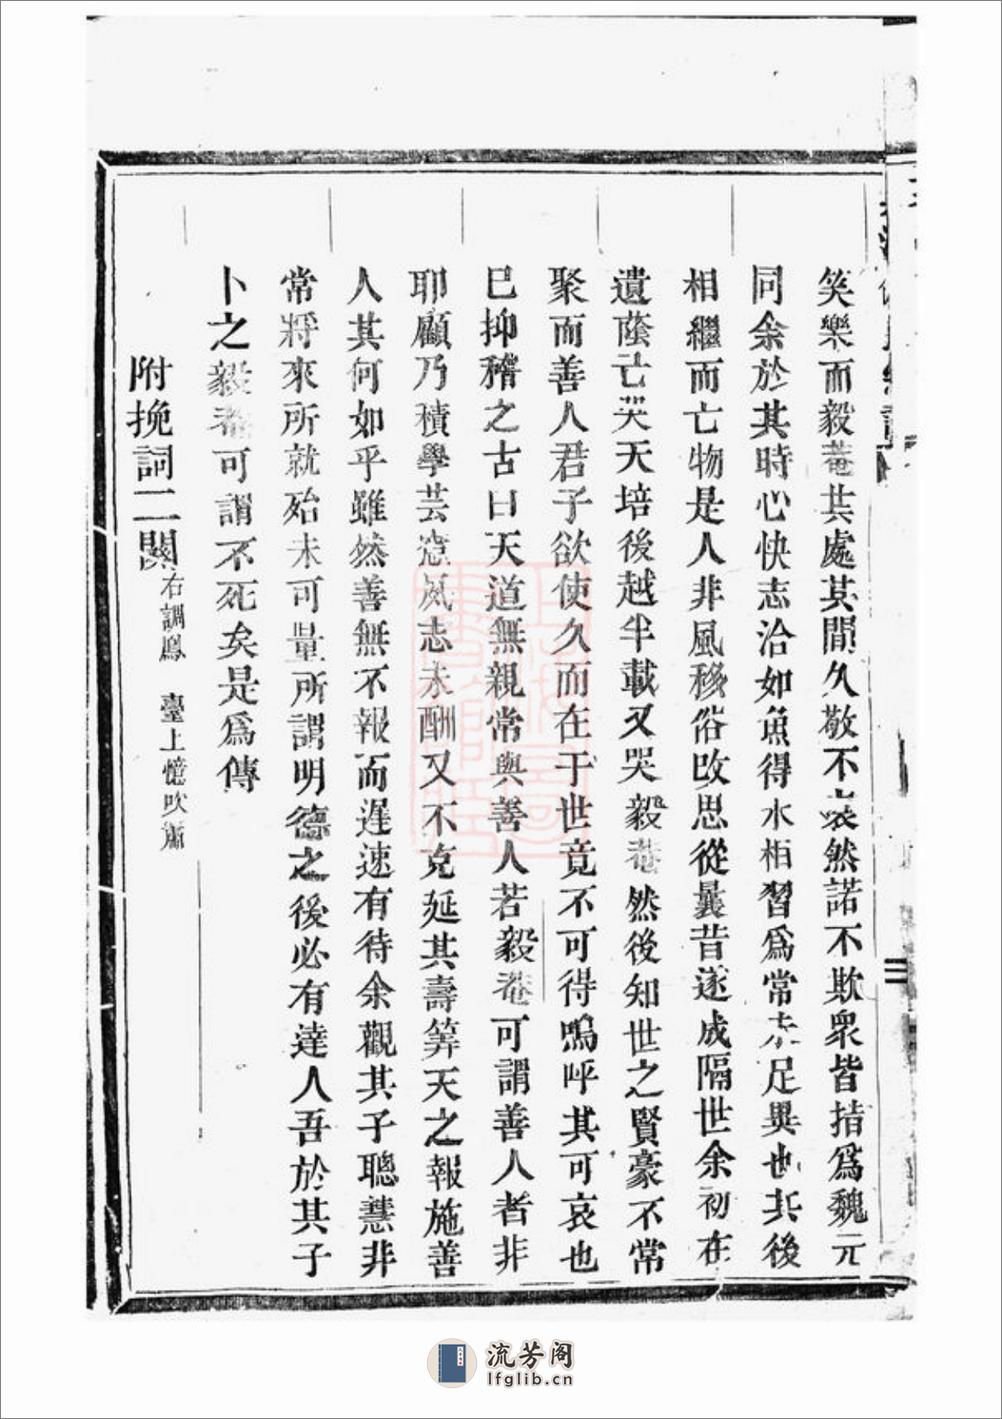 笑樂而毅菴共處其間久敬不衰然諾不欺衆皆拮爲魏元
同余於其時心快志洽如魚得水相習爲常未足異也其後
相繼而亡物是人非風移俗改思從曩昔遂成隔世余初在
遺蔭亡哭天培後越半載又哭毅菴然後知世之賢豪不常
聚而善人君子欲使久而在于世竟不可得嗚呼其可哀也
巳抑稽之古曰天道無親常與善人若毅菴可謂善人者非
耶顧乃積學芸窓夙志未酬又不克延其壽筭天之報施善
人其何如乎雖然善無不報而遲速有待余觀其子聰慧非
常將來所就殆未可量所謂明德之後必有達人吾於其子
卜之毅菴可謂不死矣是爲傳
附挽詞二闋右調鳳 臺上憶吹簫
三
流芳阁
lfglib.cn